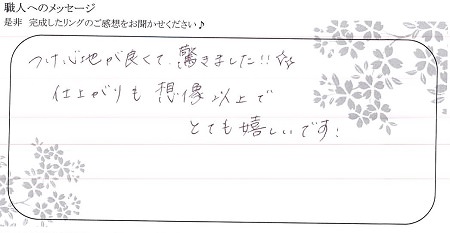 職人へのメッセージ
是非 完成したリングのご感想をお聞かせください♪
つけ心地が良くて驚きました!!☆☆
仕上がりも想像以上で
とても嬉しいです!